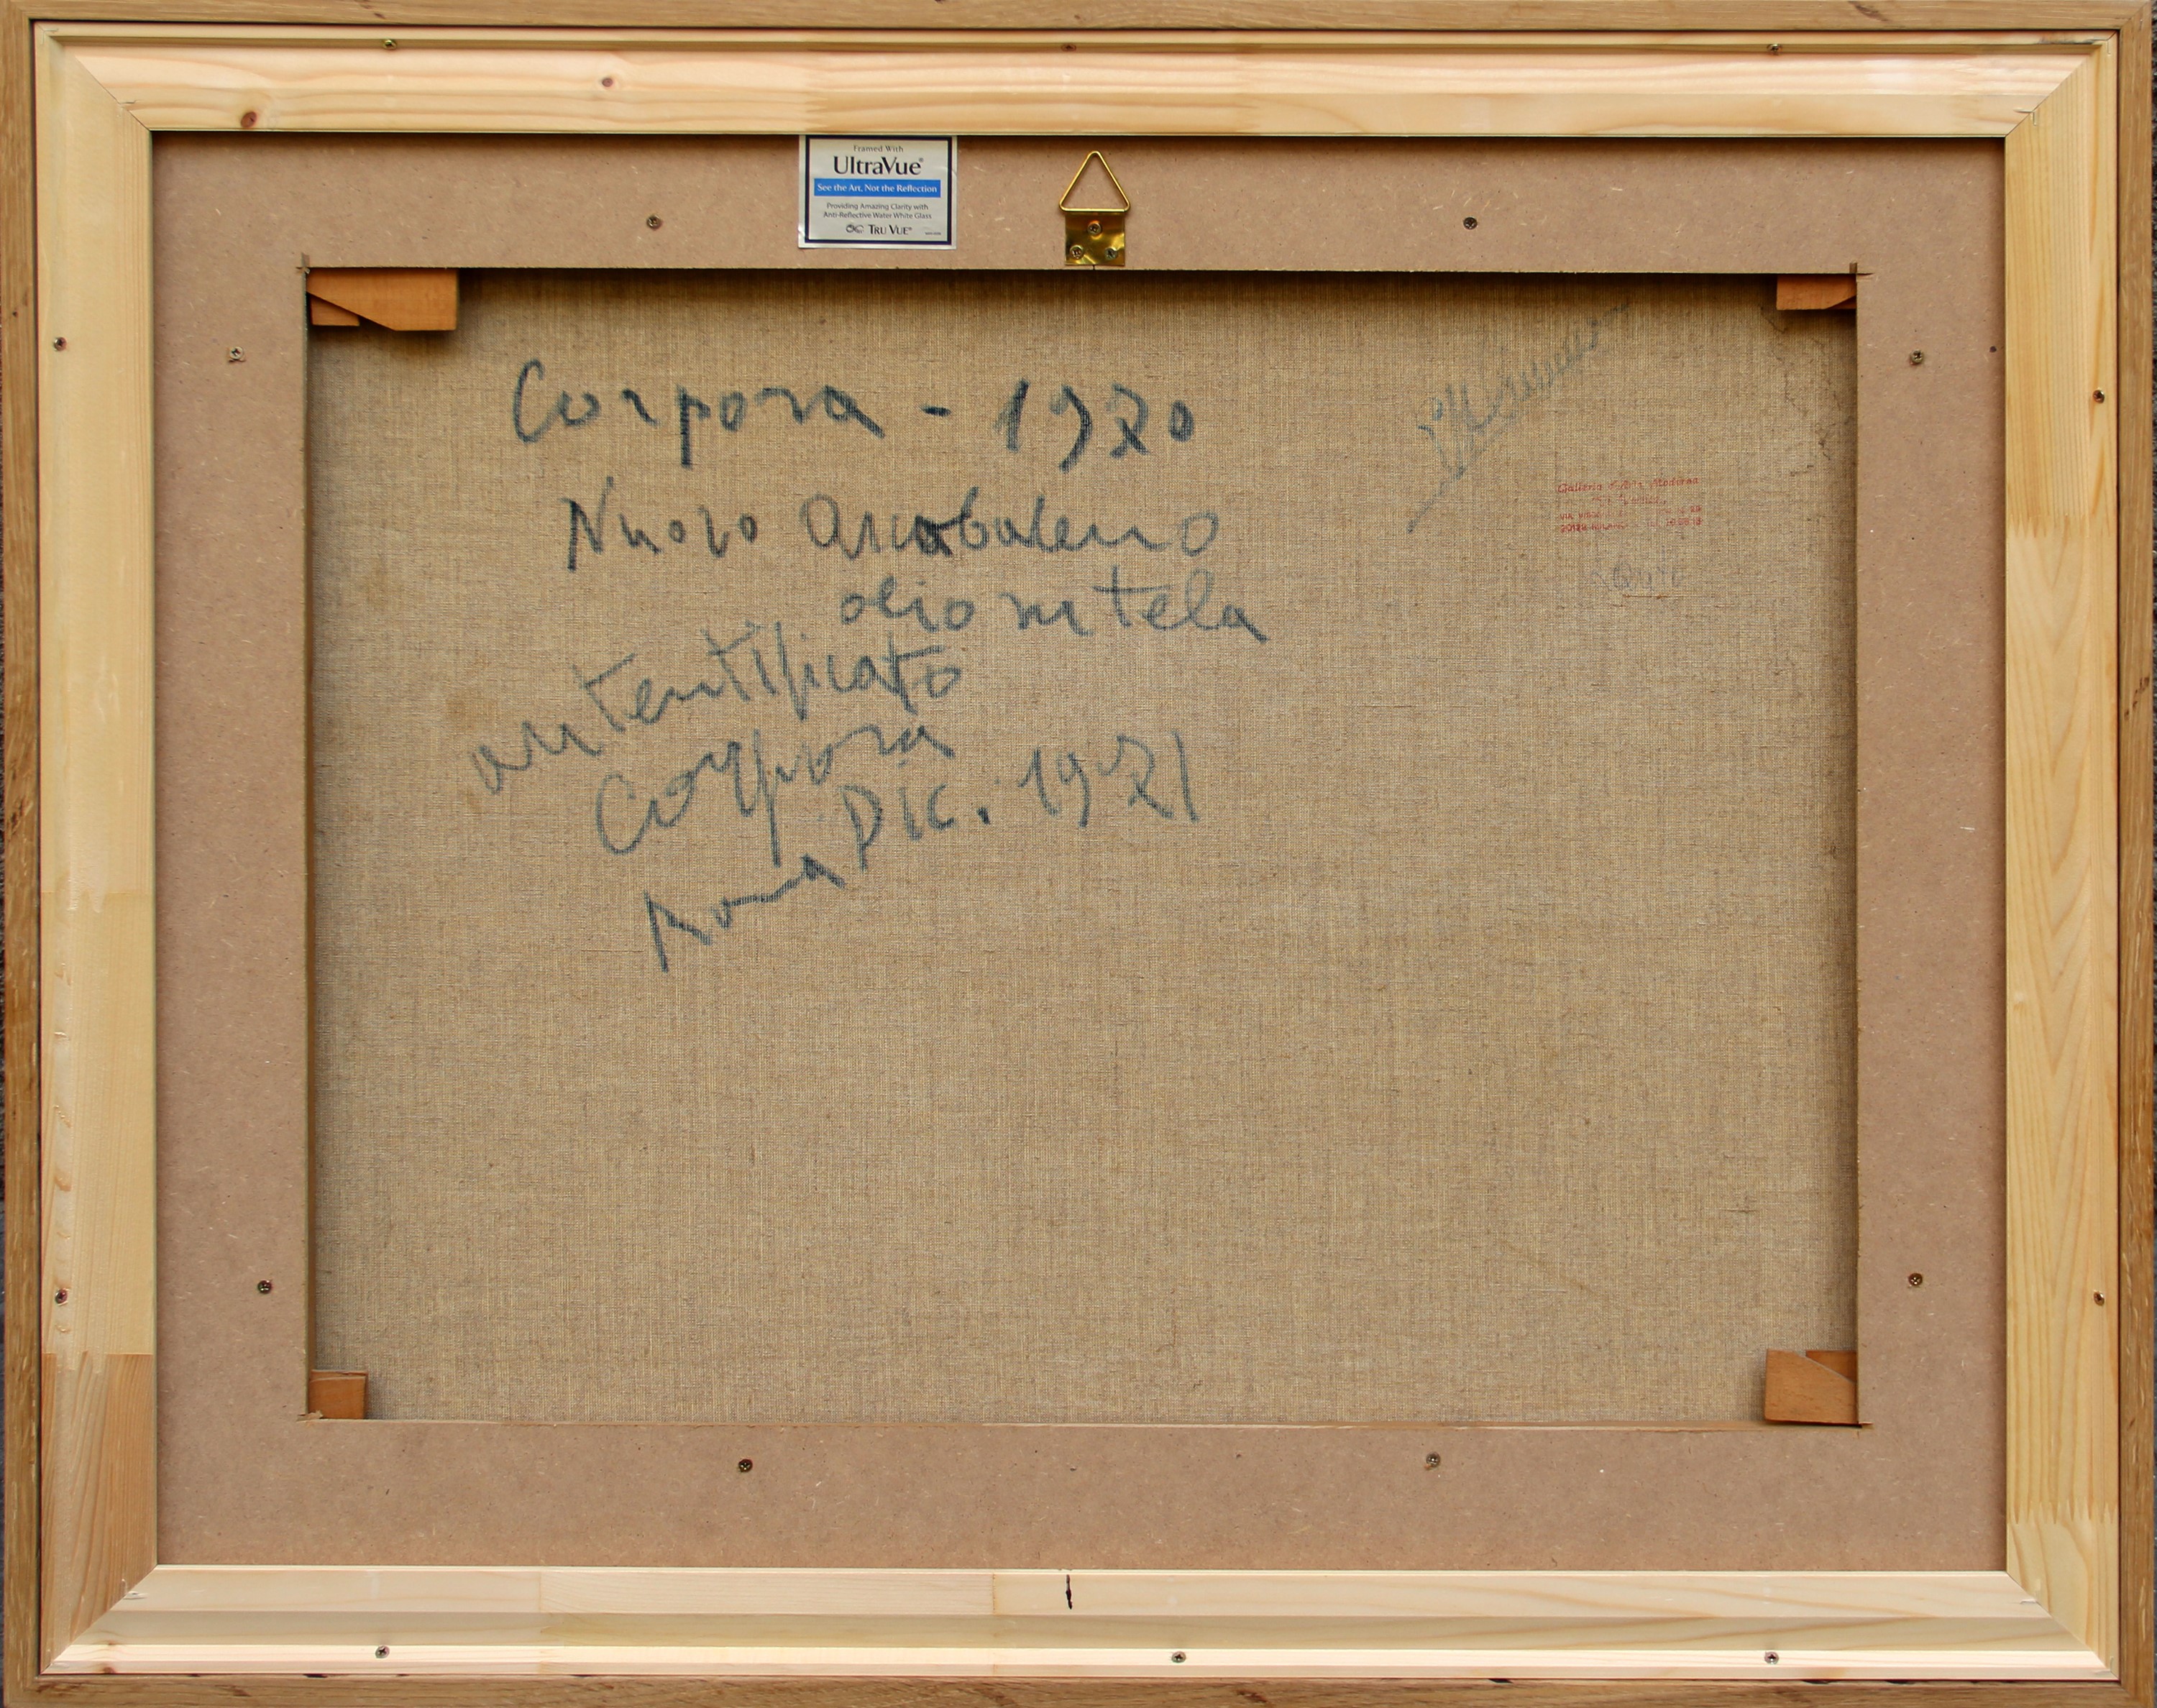 Framed With
UltraVue®
See the Art, Not the Reflection
Providing Amazing Clarity with
Anti-Reflective Water White Glass
TRU VUE®
Corpora - 1970
Nuovo Arcobaleno
olio su tela
autentificato
Corpora
Roma Dic. 1971
Galleria d'Arte Moderna
20122 MILANO